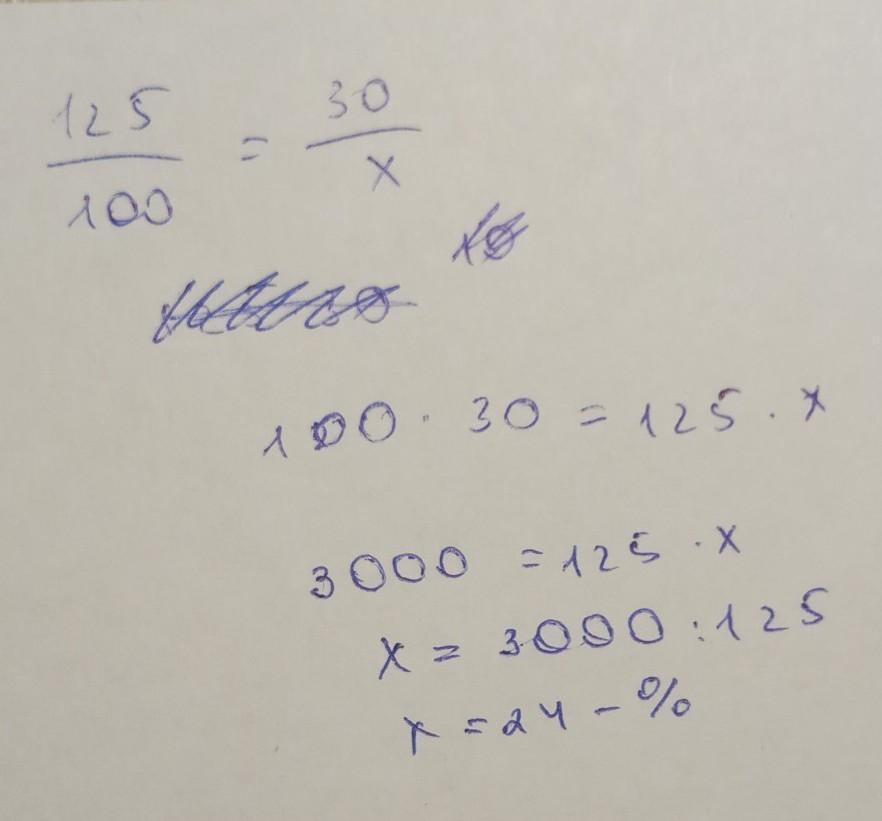 125/100 = 30/x
100 · 30 = 125 · x
3000 = 125 · x
x = 3000 : 125
x = 24 - %